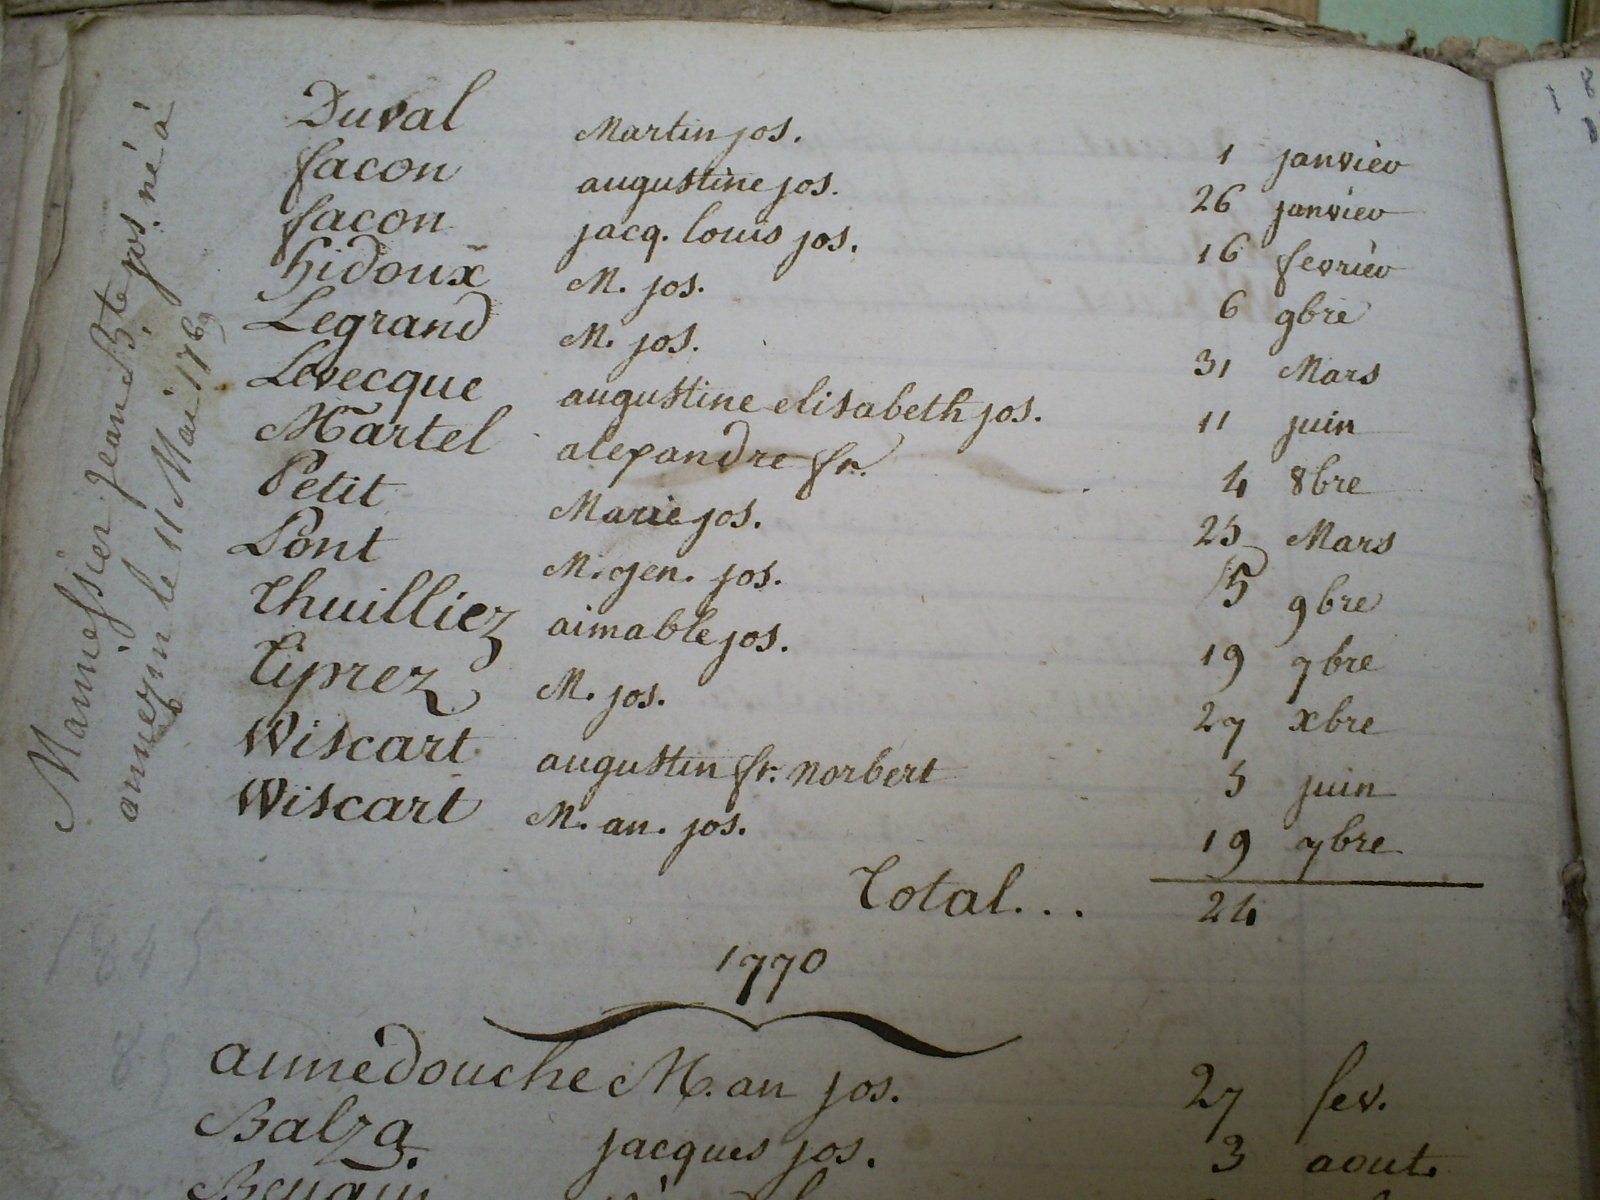 Duval Martin jos. 1 janvier
facon augustine jos. 26 janvier
facon jacq. louis jos. 16 fevrier
hidoux M. jos. 6 9bre
Legrand M. jos. 31 Mars
Levecque augustine elisabeth jos. 11 juin
Martel alexandre fr. 4 8bre
Petit Marie jos. 25 Mars
Pont M. gen. jos. 15 9bre
Thuilliez aimable jos. 19 7bre
Tiprez M. jos. 27 xbre
Wiscart augustin fr. norbert 5 juin
Wiscart M. an. jos. 19 7bre
Total... 24
1770
annedouche M. an jos. 27 fev.
Balza jacques jos. 3 aout.
Mannessier jean Bte jos. né à
annezin le 11 Mai 1769
1845